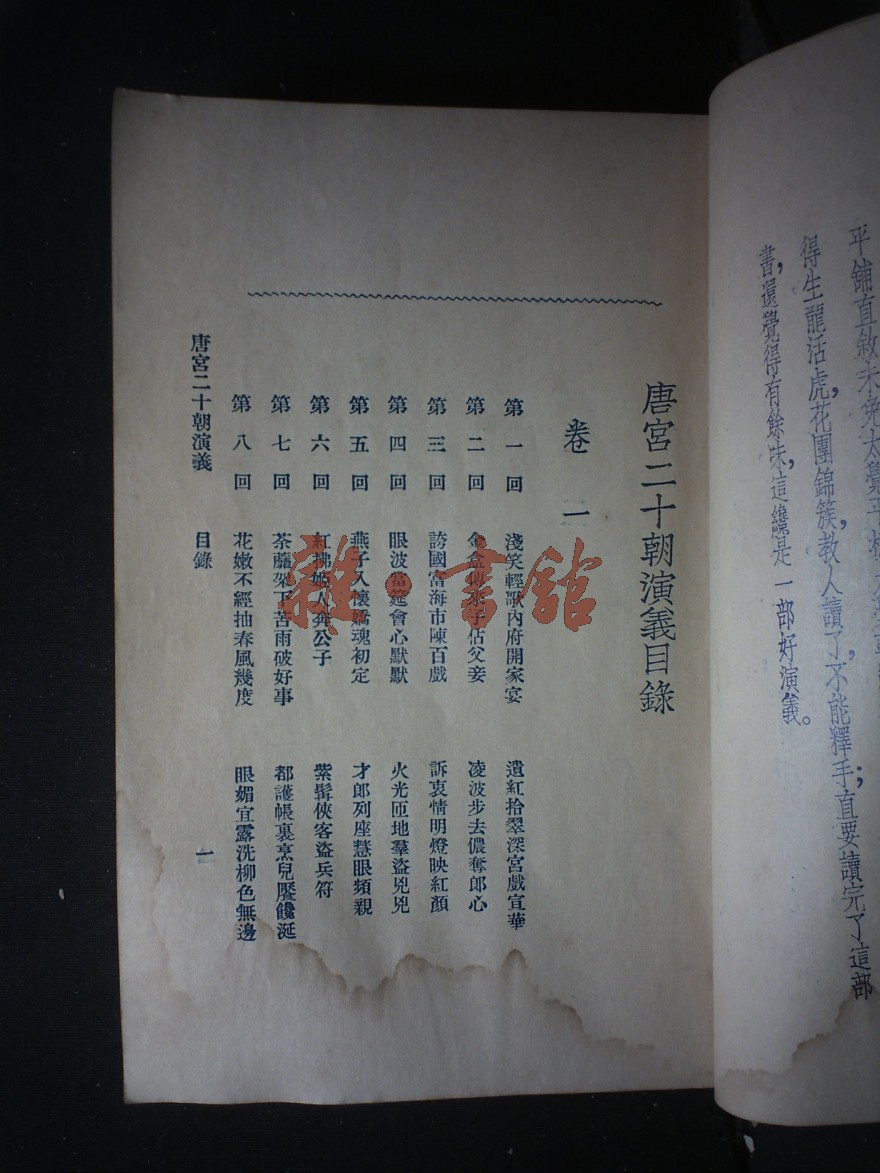 平舖直敘未免太覺平
得生龍活虎,花團錦簇,教人讀了,不能釋手;直要讀完了這部
書,還覺得有餘味,這纔是一部好演義。
唐宮二十朝演義目錄
卷一
第一回 淺笑輕歌內府開家宴 遺紅拾翠深宮戲宣華
第二回 金盒傳來子佔父妾 凌波步去儂奪郎心
第三回 誇國富海市陳百戲 訴衷情明燈映紅顏
第四回 眼波當筵會心默默 火光匝地羣盜兇兇
第五回 燕子入懷嬌魂初定 才郎列座慧眼頻親
第六回 紅拂姬人奔公子 紫髯俠客盜兵符
第七回 荼蘼架下苦雨破好事 都護帳裏烹兒饜饞涎
第八回 花嫩不經抽春風幾度 眼媚宜露洗柳色無邊
唐宮二十朝演義 目錄 一
雜·書舘